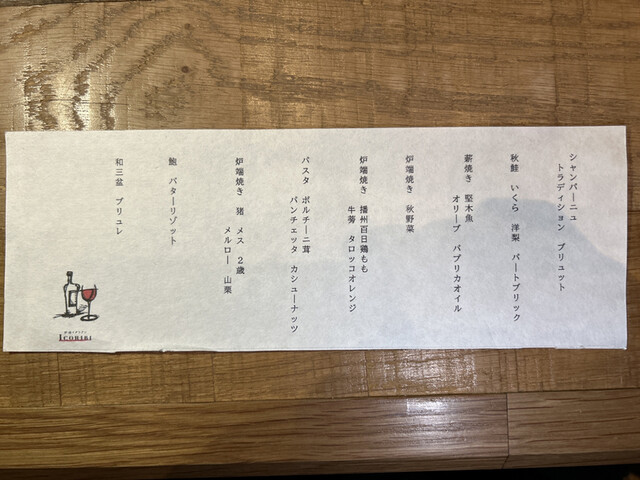 シャンパーニュ
トラディション ブリュット
秋鮭 いくら 洋梨 パートブリック
薪焼き 堅木魚
オリーブ パプリカオイル
炉端焼き 秋野菜
炉端焼き 播州百日鶏もも
牛蒡 タロッコオレンジ
パスタ ポルチーニ茸
パンチェッタ カシューナッツ
炉端焼き 猪 メス 2歳
メルロー 山栗
鮑 バターリゾット
和三盆 ブリュレ
ICORIBI